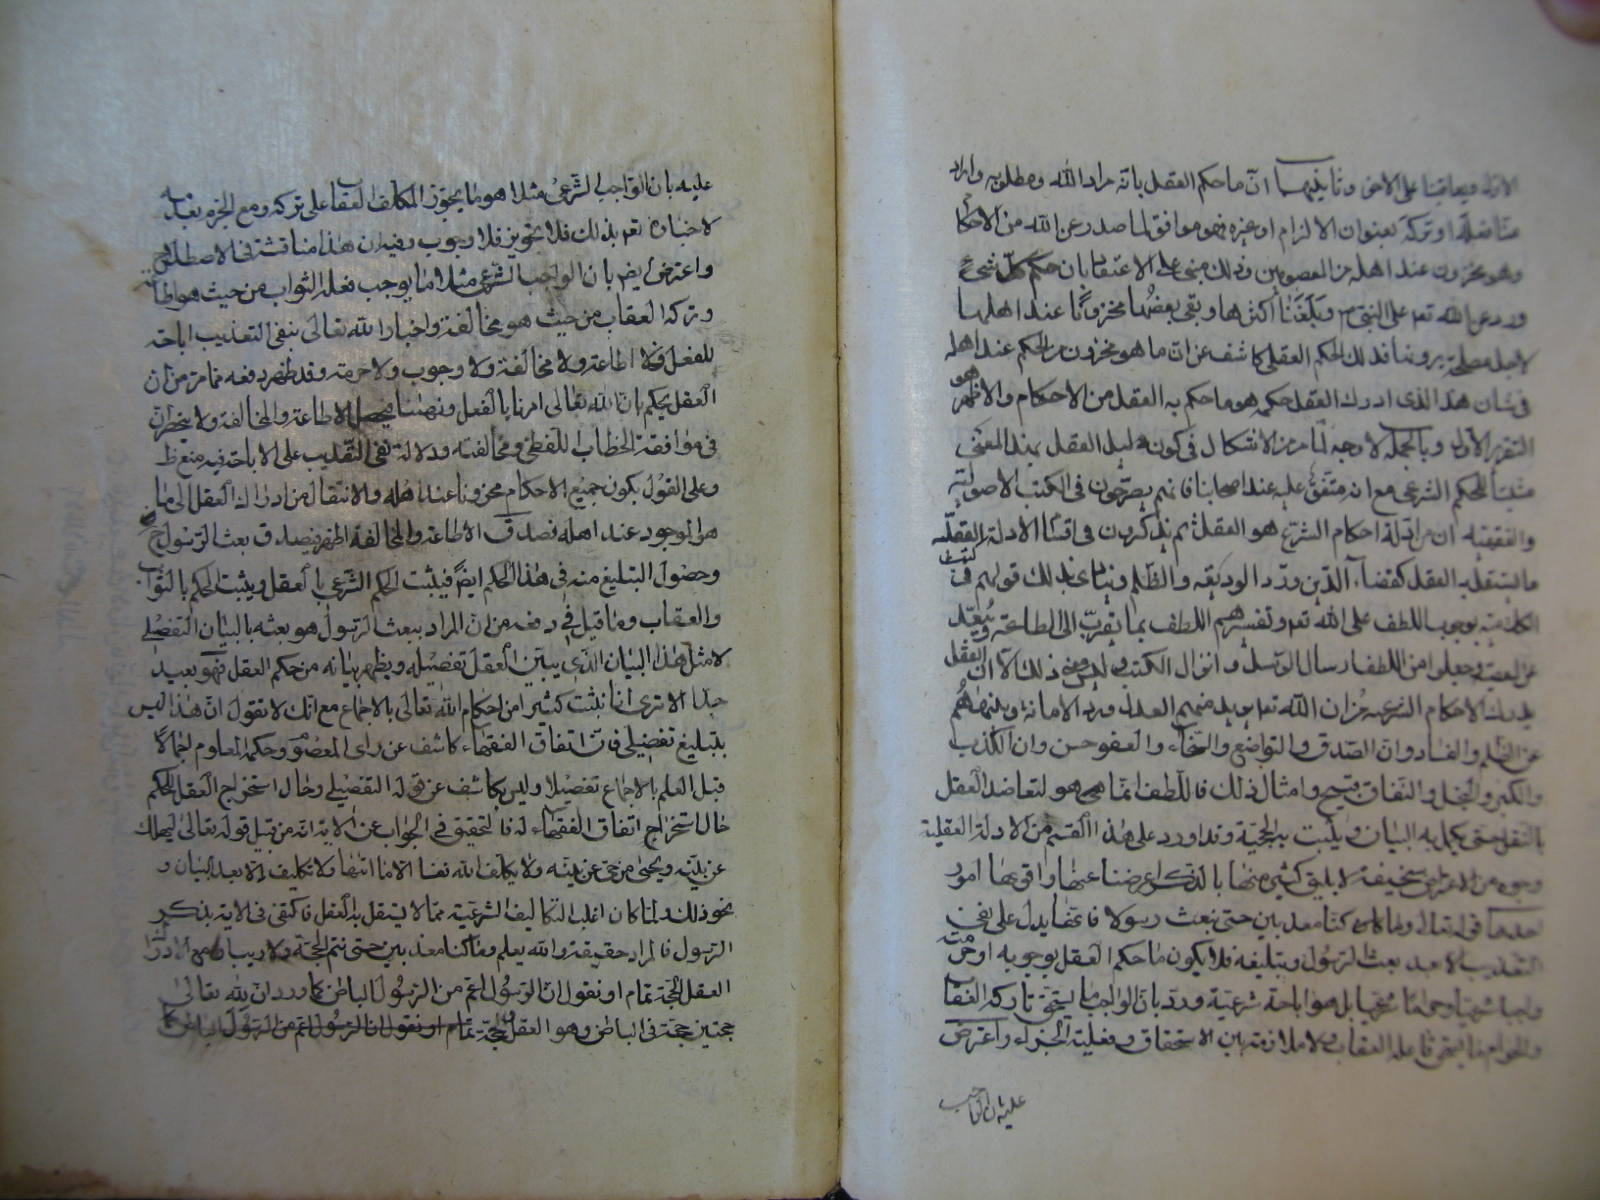 الاول ويعاقبنا على الاخر وثانيهما ان ما حكم العقل بانه مراد الله ومطلوبه واراد
منا فعله او تركه بعنوان الالزام او غيره فهو موافق لما صدر عن الله من الاحكا
وهو مخزون عند اهله من المعصومين وذلك مبني على الاعتقاد بان حكم كل شيء
ورد عن الله تعـ على النبي ص وبلغنا اكثرها وبقي بعضها مخزونا عند اهلها
لاجل مصلحة يرونها فذلك الحكم العقلي كاشف عن ان ما هو مخزون من الحكم عند اهله
في شان هذا الذي ادرك العقل حكمه هو ما حكم به العقل من الاحكام والاظهر هو
التقرير الاول وبالجملة لا وجه لما مر من الاشكال في كون دليل العقل بهذا المعنى
مثبتا للحكم الشرعي مع انه متفق عليه عند اصحابنا فانهم يصرحون في الكتب الاصولية
والفقهية ان من ادلة احكام الشرع هو العقل ثم يذكرون في اقسام الادلة العقلية
ما يستقل به العقل كقضاء الدين ورد الوديعة والظلم وينادي بذلك قولهم في كتب
الكلامية بوجوب اللطف على الله تعـ وتفسيرهم اللطف بما يقرب الى الطاعة ويبعد
عن المعصية وجعلوا من اللطف ارسال الرسل وانزال الكتب وليس معنى ذلك الا ان العقل
يدرك الاحكام الشرعية من ان الله تعـ يريد منهم العدل ورد الامانة وينهاهم
عن الظلم والفساد وان الصدق والتواضع والسخاء والعفو حسن وان الكذب
والكبر والبخل والنفاق قبيح وامثال ذلك فاللطف انما هو لتعاضد العقل
بالنقل حتى يكمل به البيان ويثبت به الحجية وقد اورد على هذا القسم من الادلة العقلية
وجوه من الاعتراض سخيفة لا يليق كثير منها بالذكر اعرضنا عنها واقويها امور
احدها قوله تعالى وما كنا معذبين حتى نبعث رسولا فانها يدل على نفي
التعذيب الا بعد بعث الرسول وتبليغه فلا يكون ما حكم العقل بوجوبه او حرمت
واجبا شرعيا او حراما شرعيا بل هو اباحة شرعية ورد بان الواجب ما يستحق تاركه العقاب
والحرام ما يستحق فاعله العقاب ولا ملازمة بين الاستحقاق وفعلية الجزاء واعترض
عليه بان الواجب
عليه بان الواجب الشرعي مثلا هو ما يجوز المكلف العقاب على تركه ومع الجزم بعدمه
لاخباره تعـ بذلك فلا تجويز فلا وجوب وفيه ان هذا مناقشة في الاصطلاح
واعترض ايضـ بان الواجب الشرعي مثلا ما يوجب فعله الثواب من حيث هو اطاعة
وتركه العقاب من حيث هو مخالفة واخبار الله تعالى بنفي التعذيب اباحة
للفعل فلا اطاعة ولا مخالفة ولا وجوب ولا حرمة وقد ظهر دفعه مما مر من ان
العقل يحكم بان الله تعالى امرنا بالفعل ونهانا فيحصل الاطاعة والمخالفة ولا ينحصران
في موافقة الخطاب اللفظي ومخالفته ودلالة نفي التعذيب على الاباحة فيه منع ظـ
وعلى القول بكون جميع الاحكام مخزونا عند اهله والانتقال من ادراك العقل الى ما
هو الموجود عند اهله فصدق الاطاعة والمخالفة اظهر فيصدق بعث الرسول ح
وحصول التبليغ منه في هذا الحكم ايضـ فيثبت الحكم الشرعي بالعقل ويثبت الحكم بالثواب
والعقاب وما قيل في دفعه من ان المراد ببعث الرسول هو بعثه بالبيان التفصيلي
لا مثل هذا البيان الذي يبين العقل تفصيله ويظهر بيانه من حكم العقل فهو بعيد
جدا الا ترى انا نثبت كثيرا من احكام الله تعالى بالاجماع مع انك لا تقول ان هذا ليس
بتبليغ تفصيلي فان اتفاق الفقهاء كاشف عن راى المعصوم وحكمه المعلوم اجمالا
قبل العلم بالاجماع تفصيلا وليس بكاشف عن قوله التفصيلي وحال استخراج العقل الحكم
حال استخراج اتفاق الفقهاء له فالتحقيق في الجواب عن الاية انه من قبيل قوله تعالى ليهلك
عن بينة ويحيى من حي عن بينة ولا يكلف الله نفسا الا ما اتيها ولا تكليف الا بعد البيان و
نحو ذلك ولما كان اغلب التكاليف الشرعية مما لا يستقل به العقل فاكتفى في الاية بذكر
الرسول فالمراد حقيقة والله يعلم وما كنا معذبين حتى نتم الحجة ولا ريب ان مع ادراك
العقل الحجة تمام او نقول ان الرسول اعم من الرسول الباطن كما ورد ان لله تعالى
حجتين حجة في الباطن وهو العقل وحجة تمام او نقول ان الرسول اعم من الرسول الباطن كما